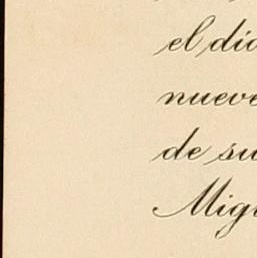 el día
nueve
de su
Migu